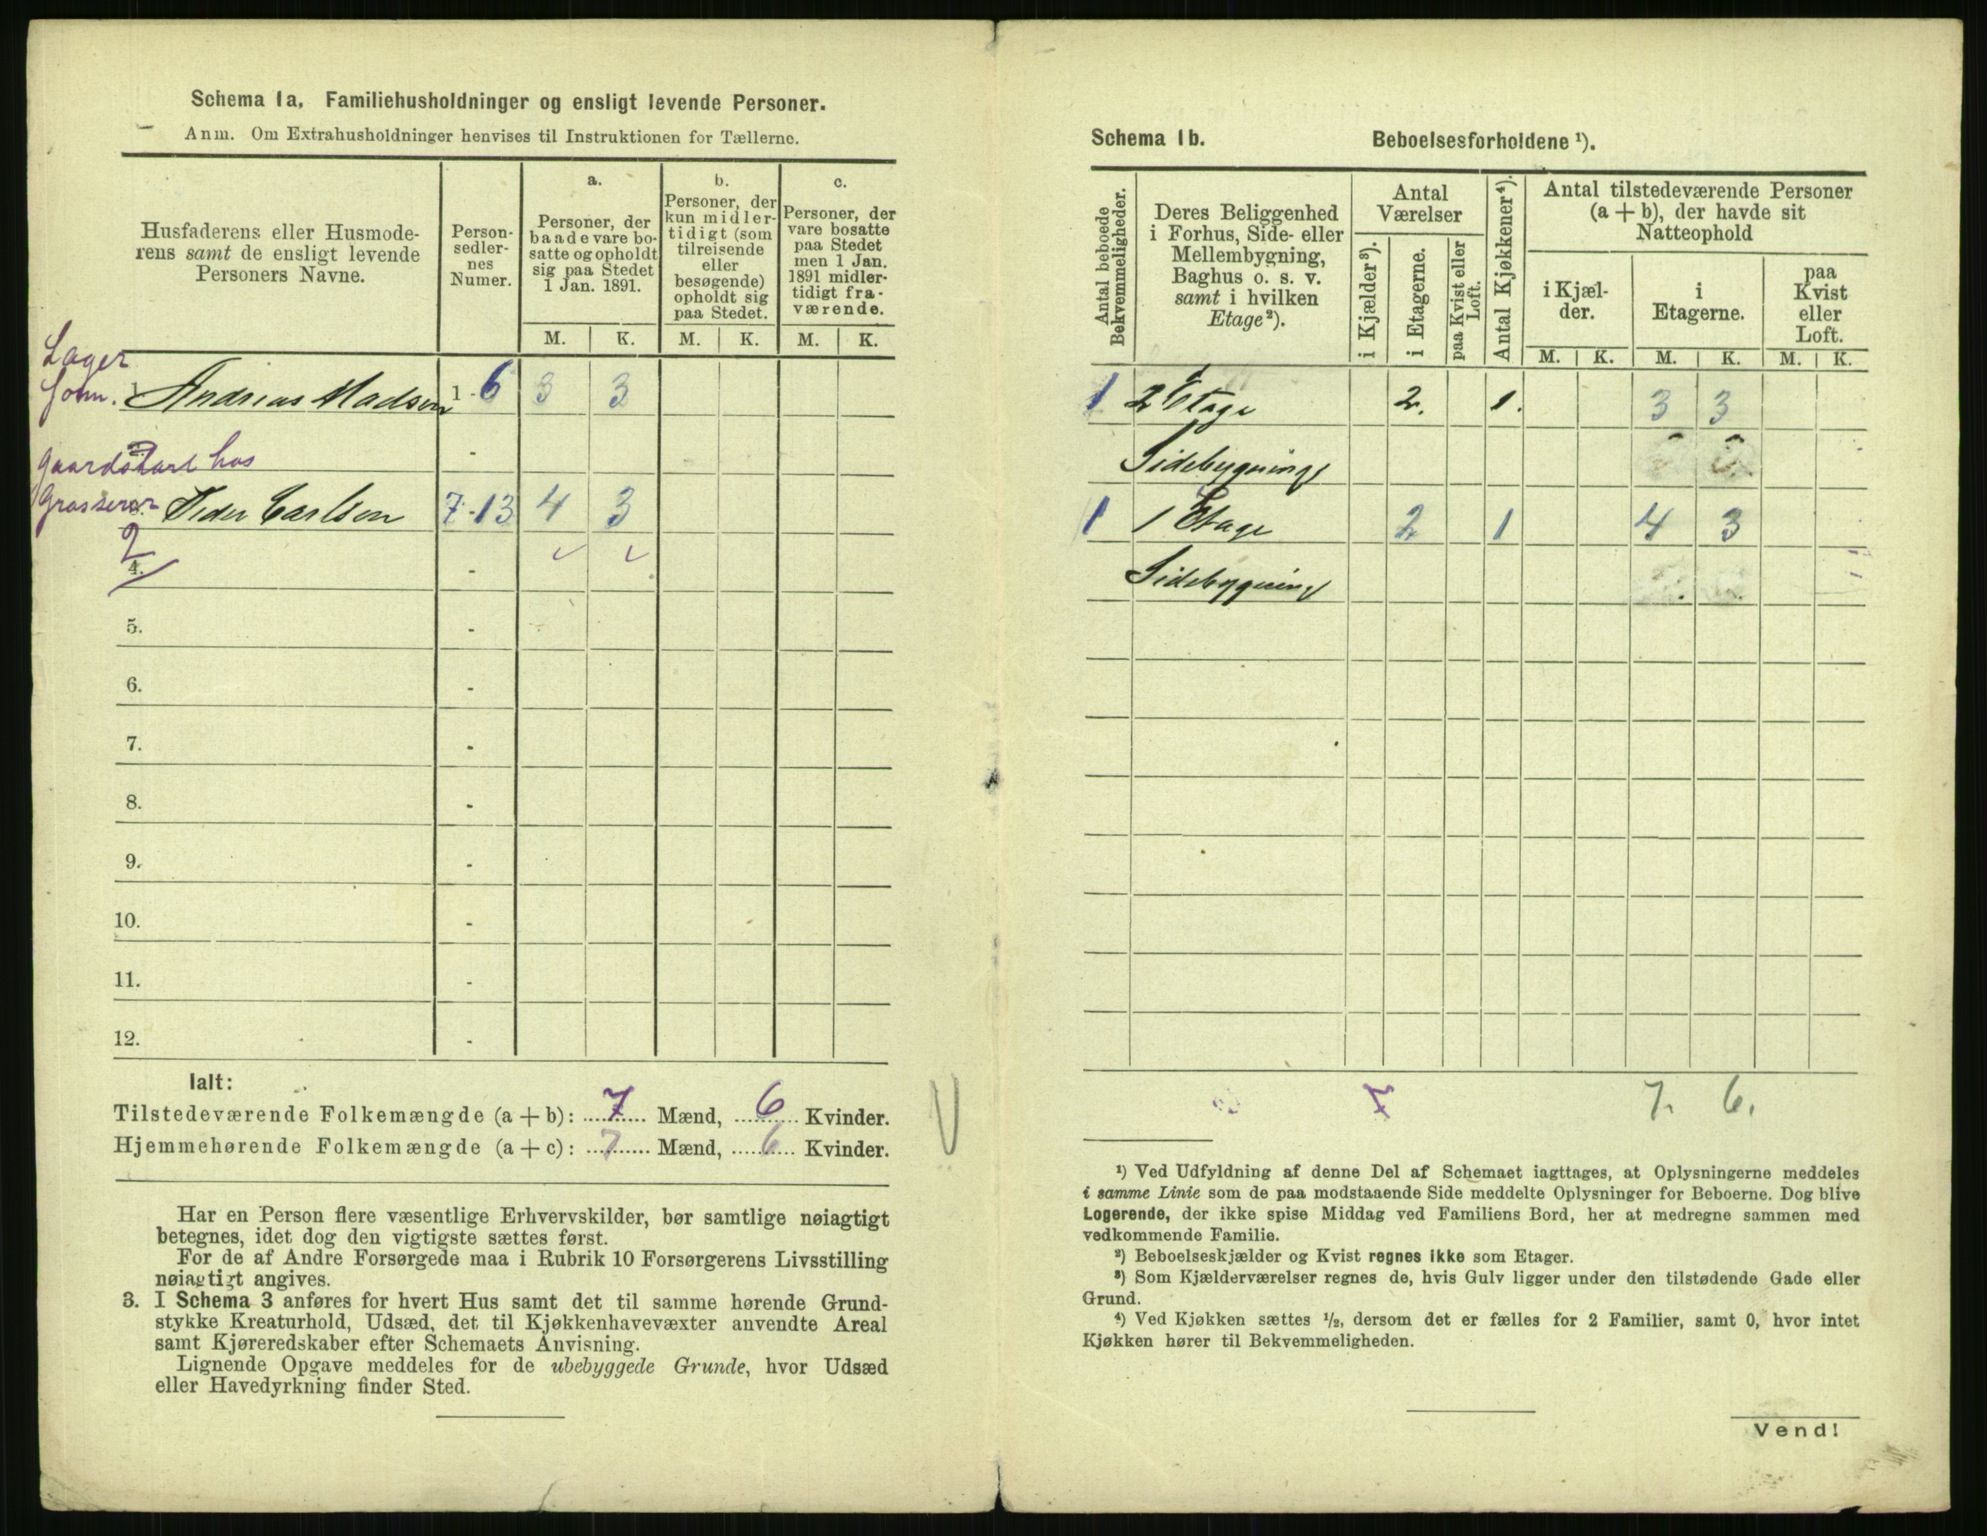 Schema 1a. Familiehusholdninger og ensligt levende Personer.
Anm. Om Extrahusholdninger henvises til Instruktionen for Tællerne.
Husfaderens eller Husmode-
rens samt de ensligt levende
Personers Navne.
Person-
sedler-
nes
Numer.
a.
Personer, der
baade vare bo-
satte og opholdt
sig paa Stedet
1 Jan. 1891.
b.
Personer, der
kun midler-
tidigt (som
tilreisende
eller
besøgende)
opholdt sig
paa Stedet.
c.
Personer, der
vare bosatte
paa Stedet
men 1 Jan.
1891 midler-
tidigt fra-
værende.
M. K. M. K. M. K.
Lager
fom. 1. Andrias Madsen 1 - 6 3 3
Gaardskarl hos -
Grosserer 3. Peder Carlson 7 - 13 4 3
2
4. -
5. -
6. -
7. -
8. -
9. -
10. -
11. -
12. -
Ialt:
Tilstedeværende Folkemængde (a + b): 7 Mænd, 6 Kvinder.
Hjemmehørende Folkemængde (a + c): 7 Mænd, 6 Kvinder.
Har en Person flere væsentlige Erhvervskilder, bør samtlige nøiagtigt
betegnes, idet dog den vigtigste sættes først.
For de af Andre Forsørgede maa i Rubrik 10 Forsørgerens Livsstilling
nøiagtigt angives.
3. I Schema 3 anføres for hvert Hus samt det til samme hørende Grund-
stykke Kreaturhold, Udsæd, det til Kjøkkenhavevæxter anvendte Areal
samt Kjøreredskaber efter Schemaets Anvisning.
Lignende Opgave meddeles for de ubebyggede Grunde, hvor Udsæd
eller Havedyrkning finder Sted.
Schema 1b. Beboelsesforholdene ¹).
Antal beboede
Bekvemmeligheder.
Deres Beliggenhed
i Forhus, Side- eller
Mellembygning,
Baghus o. s. v.
samt i hvilken
Etage²).
Antal
Værelser
i Kjælder³).
i Etagerne.
paa Kvist eller
Loft.
Antal Kjøkkener⁴).
Antal tilstedeværende Personer
(a + b), der havde sit
Natteophold
i Kjæl-
der.
i
Etagerne.
paa
Kvist
eller
Loft.
M. K. M. K. M. K.
1 2 Etage 2. 1. 3 3
Sidebygning
1 1 Etage 2 1 4 3
Sidebygning
7 7. 6.
¹) Ved Udfyldning af denne Del af Schemaet iagttages, at Oplysningerne meddeles
i samme Linie som de paa modstaaende Side meddelte Oplysninger for Beboerne. Dog blive
Logerende, der ikke spise Middag ved Familiens Bord, her at medregne sammen med
vedkommende Familie.
²) Beboelseskjælder og Kvist regnes ikke som Etager.
³) Som Kjælderværelser regnes de, hvis Gulv ligger under den tilstødende Gade eller
Grund.
⁴) Ved Kjøkken sættes ½, dersom det er fælles for 2 Familier, samt 0, hvor intet
Kjøkken hører til Bekvemmeligheden.
Vend!